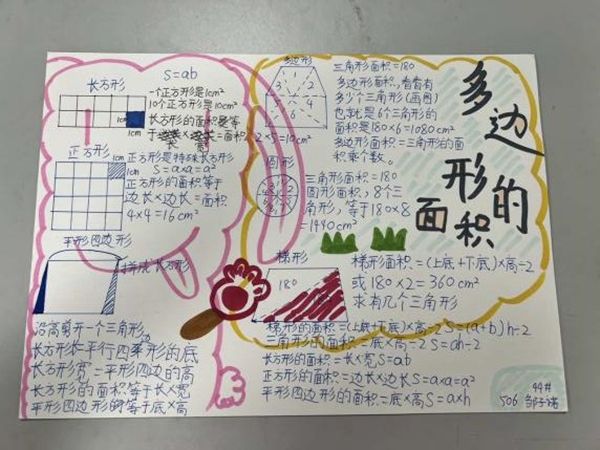 多边形的
面积
长方形
S=ab
一个正方形是1cm²
10个正方形是10cm²
长方形的面积等
于
=面积, 2×5=10cm²
1cm
1cm
正方形
1cm
1cm
正方形是特殊长方形
S=a×a=a²
正方形的面积等于
边长×边长=面积
4×4=16cm²
平行四边形
拼成长方形
沿高剪开一个三角形,
长方形长=平行四边形的底
长方形宽=平行四边的高
长方形的面积等于长×宽
平形四边形的等于底×高
多边形
1
2
3
2
5
4
6
三角形面积=180
多边形面积,看看有
多少个三角形(画图)
也就是6个三角形的
面积是180×6=1080cm²
多边形面积=三角形的面
积乘个数。
圆形
三角形面积=180
圆形面积,8个三
角形,等于180×8
=1440cm²
梯形
180
梯形面积=(上底+下底)×高÷2
或180×2=360cm²
求有几个三角形
梯形的面积=(上底+下底)×高÷2 S=(a+b)h÷2
三角形的面积=底×高÷2 S=ah÷2
长方形的面积=长×宽S=ab
正方形的面积=边长×边长S=a×a=a²
平形四边形的面积=底×高S=a×h
44#
506 邹子诺